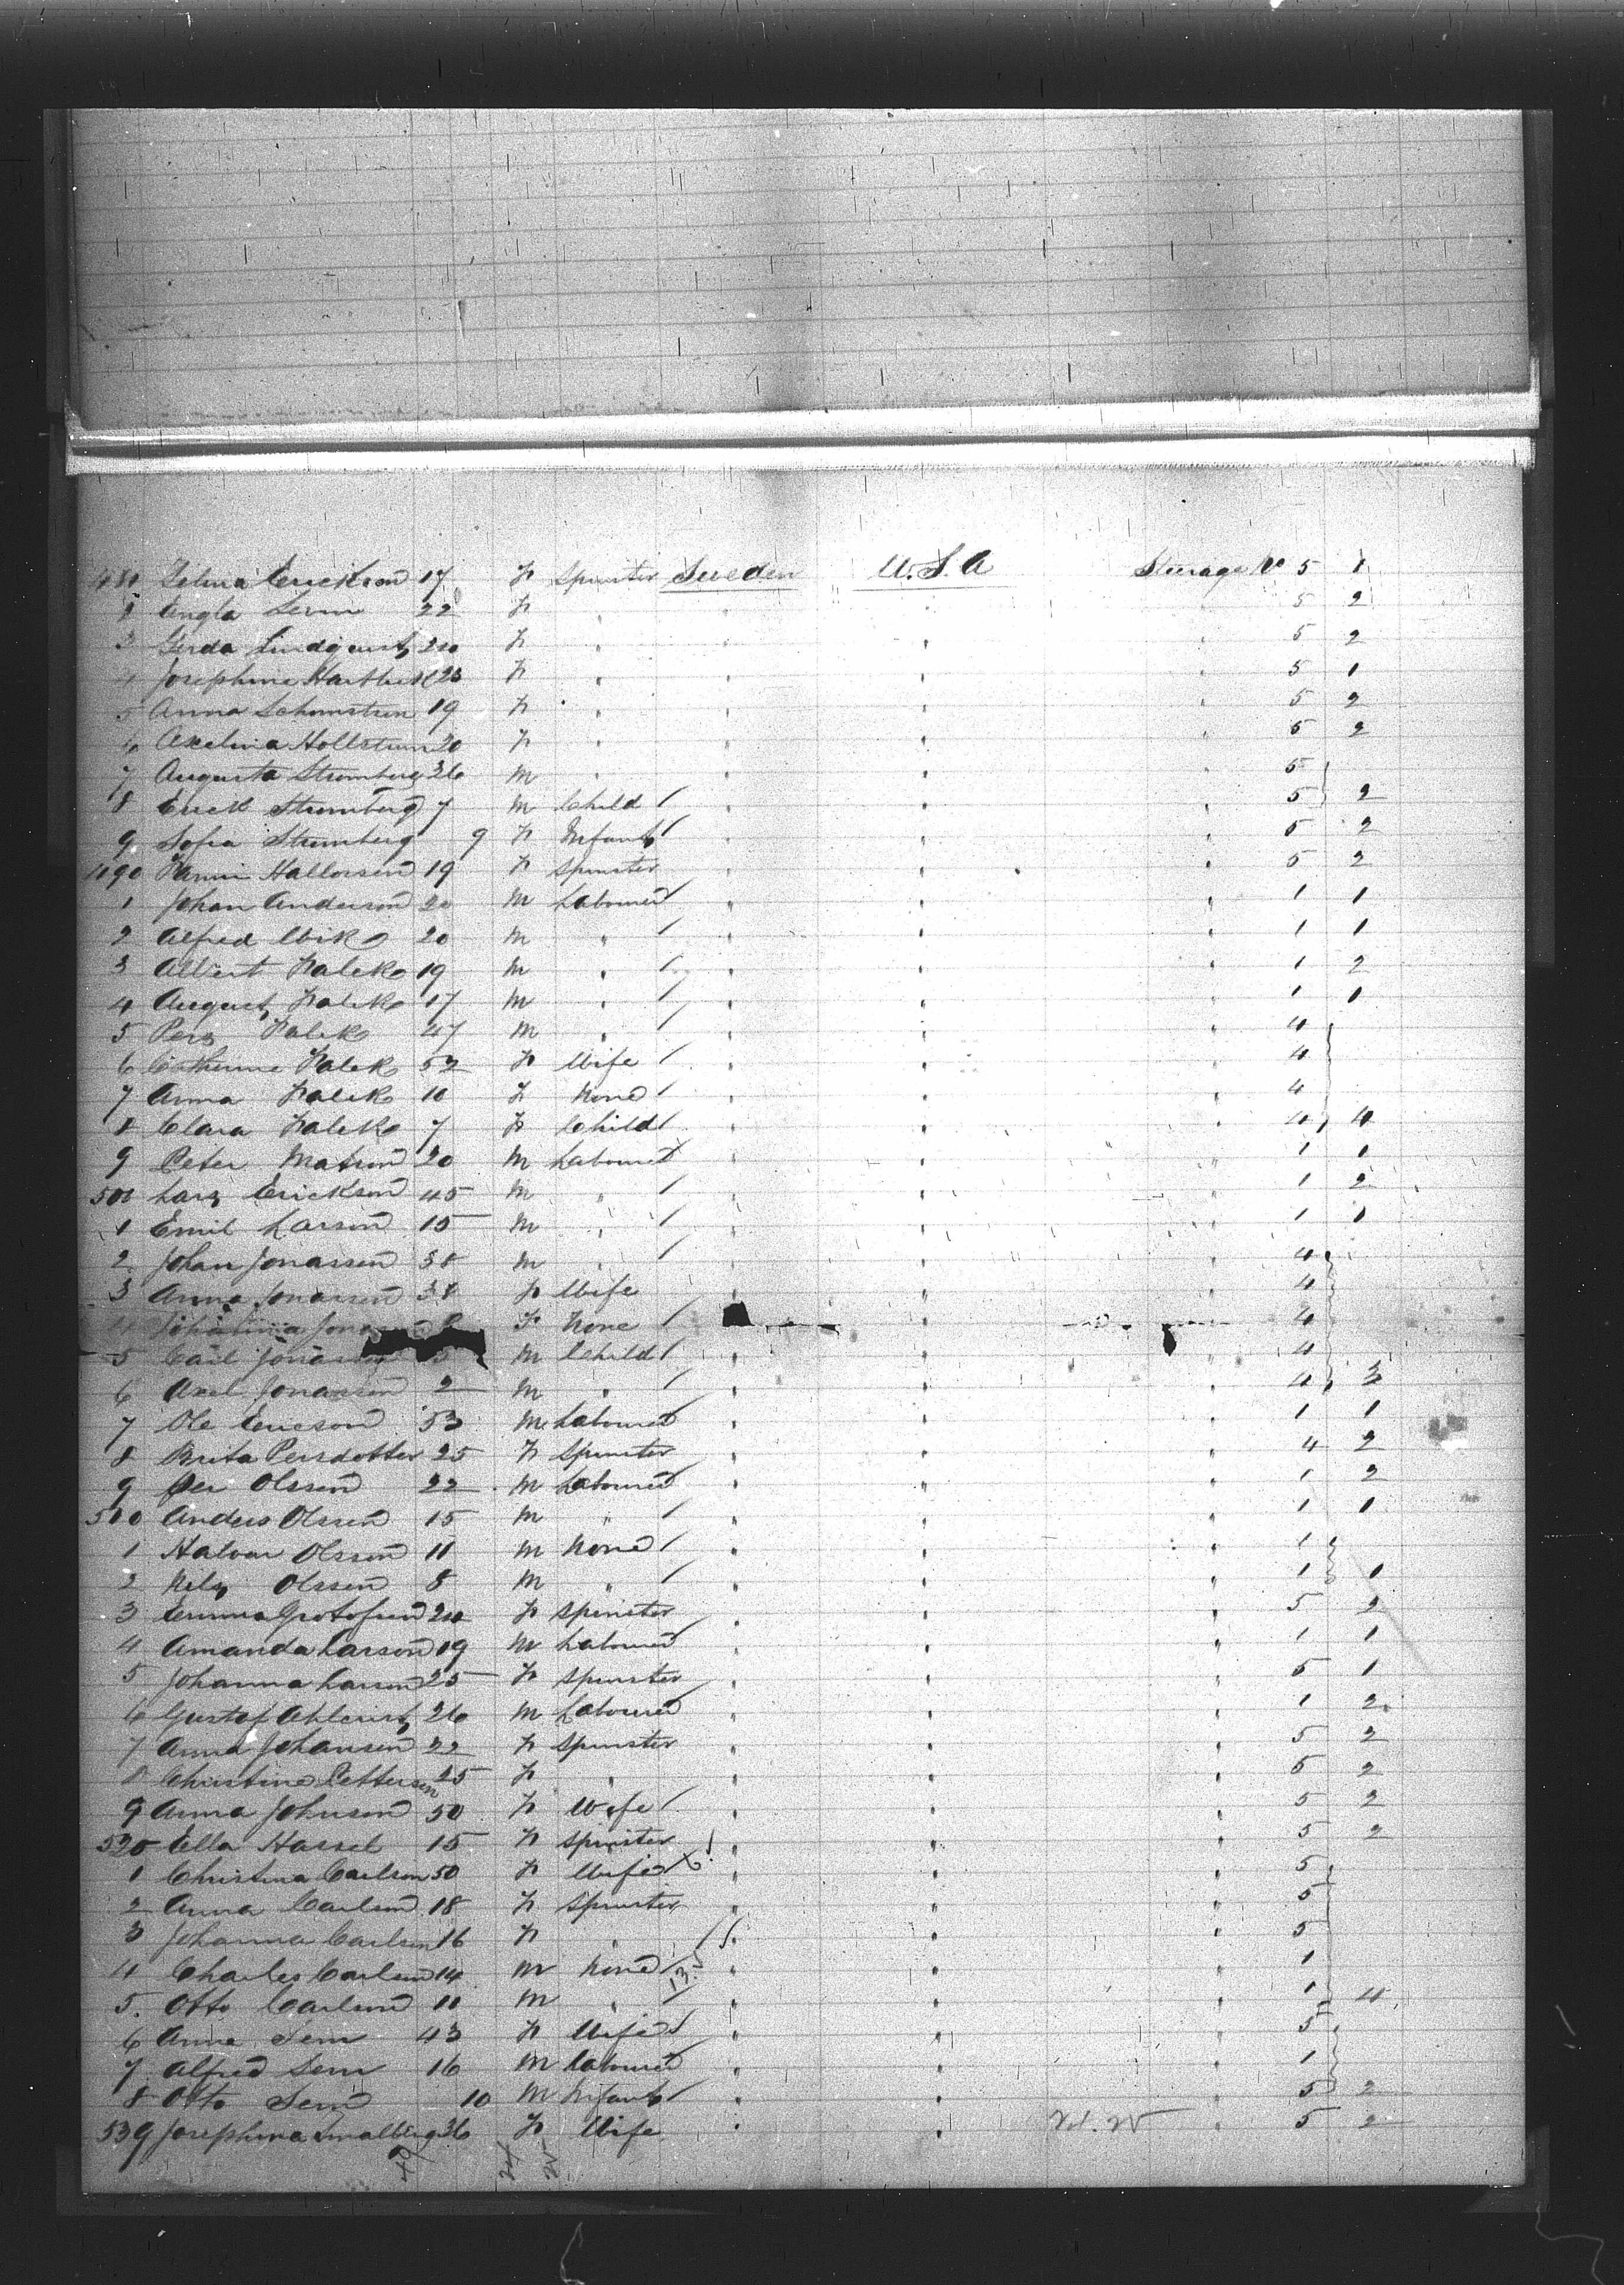 481 Selma Erickson 17 F Spinster Sweden U.S.A Steerage No 5 1
2 Angla 22 F " " " " 5 2
3 Gerda Lindqvist 20 F " " " " 5 2
4 Josephine 23 F " " " " 5 1
5 Anna 19 F " " " " 5 2
6 Axelina Hollstrum 20 F " " " " 5 2
7 Augusta Stromberg 36 M " " " " 5
8 Erick Stromberg 7 M Child " " " 5 2
9 Sofia Stromberg 9 F Infant " " " 5 2
490 Hallorsen 19 F Spinster " " " 5 2
1 Johan Anderson 20 M Labourer " " " 1 1
2 Alfred Wik 20 M " " " " 1 1
3 Albert Falck 19 M " " " " 1 2
4 August Falck 17 M " " " " 1 1
5 Pers Falck 47 M " " " " 4
6 Catherine Falck 52 F Wife " " " 4
7 Anna Falck 10 F None " " " 4
8 Clara Falck 7 F Child " " " 4 4
9 Peter Matson 20 M Labourer " " " 1 1
500 Lars Erickson 45 M " " " " 1 2
1 Emil Larson 15 M " " " " 1 1
2 Johan Jonassen 38 M " " " " 4
3 Anna Jonassen 38 F Wife " " " 4
4 F None " " " 4
5 Carl M Child " " " 4
6 Axel Jonassen 2 M " " " " 4 3
7 Ole Ericson 53 M Labourer " " " 1 1
8 Brita Persdotter 25 F Spinster " " " 4 2
9 Per Olssen 22 M Labourer " " " 1 2
510 Anders Olssen 15 M " " " " 1 1
1 Halvar Olsson 11 M None " " " 1
2 Nels Olssen 8 M " " " " 1 1
3 Emma 24 F Spinster " " " 5 2
4 Amanda Larson 19 M Labourer " " " 1 1
5 Johanna Larson 25 F Spinster " " " 5 1
6 Gustaf 26 M Labourer " " " 1 2
7 Anna Johansen 22 F Spinster " " " 5 2
8 Christine Pettersen 25 F " " " " 5 2
9 Anna Johnson 50 F Wife " " " 5 2
520 Ella Hassel 15 F Spinster " " " 5 2
1 Christina Carlson 50 F Wife " " " 5
2 Anna Carlson 18 F Spinster " " " 5
3 Johanna Carlson 16 F " " " " 5
4 Charles Carlson 14 M None " " " 1
5 Otto Carlson 11 M " " " " 1 4
6 Anna Sem 43 F Wife " " " 5
7 Alfred Sem 16 M Labourer " " " 1
8 Otto Sem 10 M Infant " " " 5 2
539 Josephina 36 F Wife " " 5 2